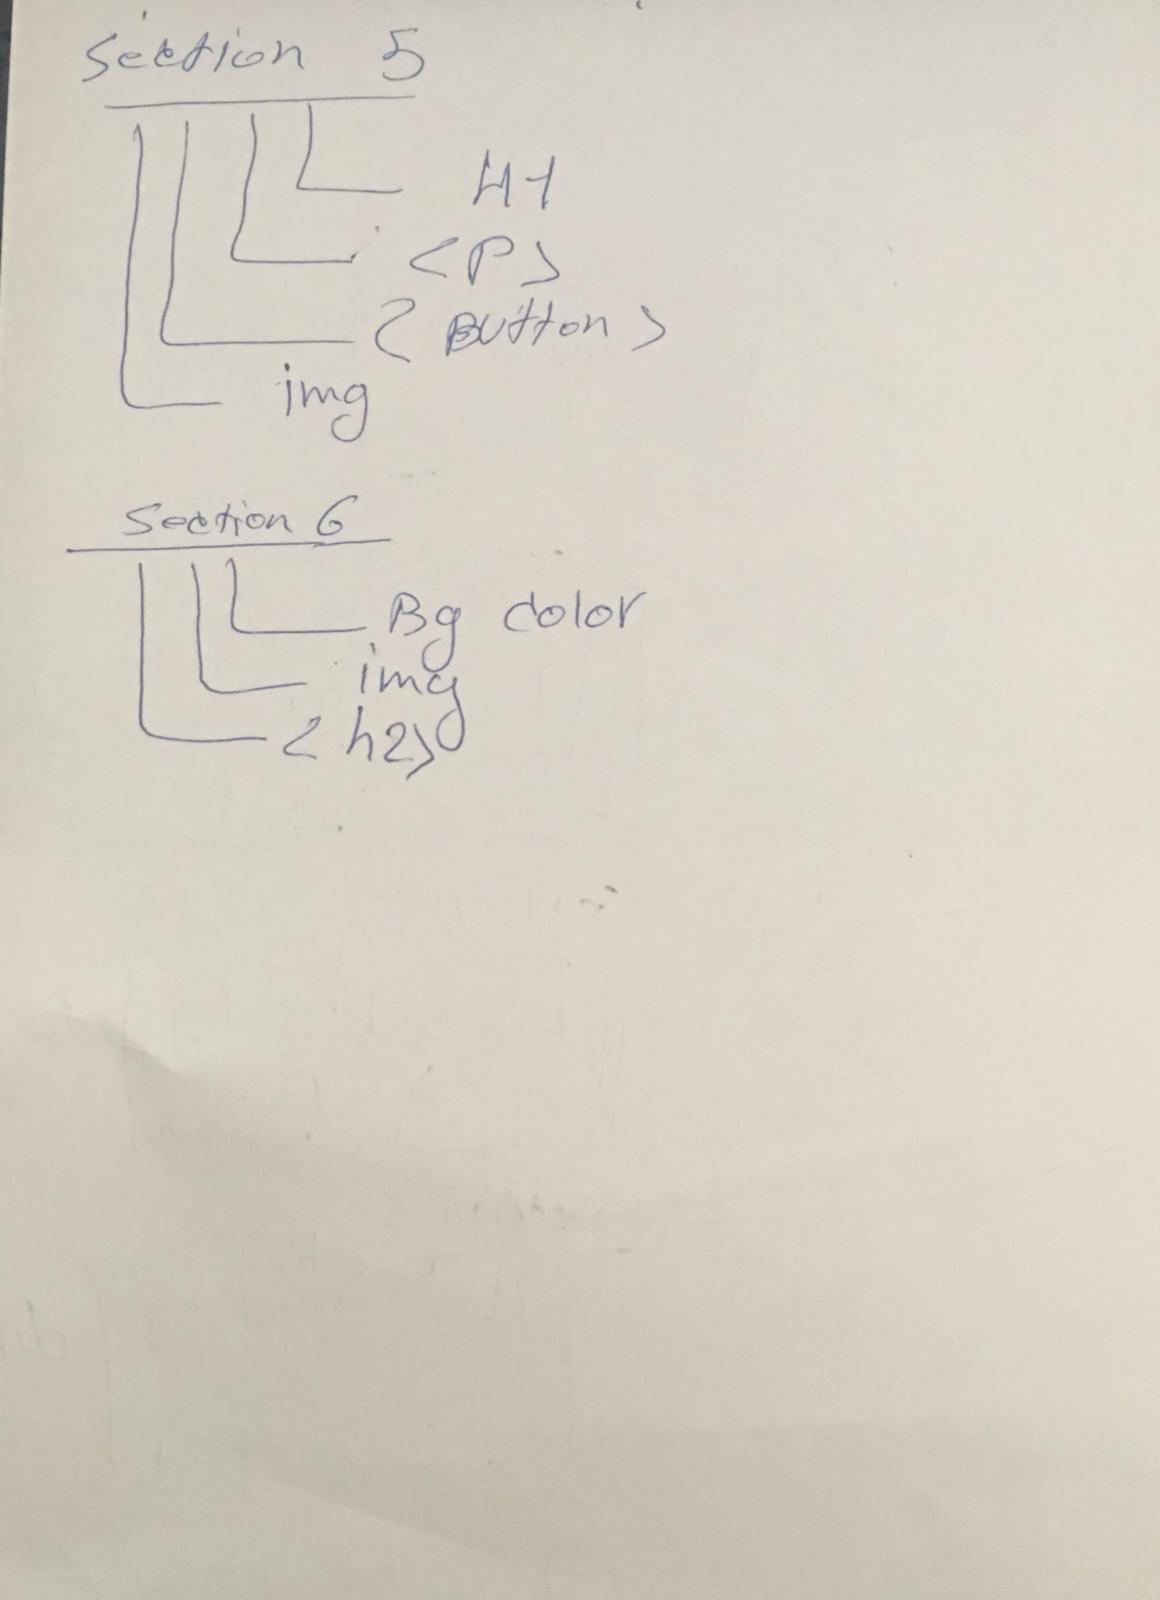 Section 5
H1
<P>
<Button>
img
Section 6
Bg color
img
<h2>